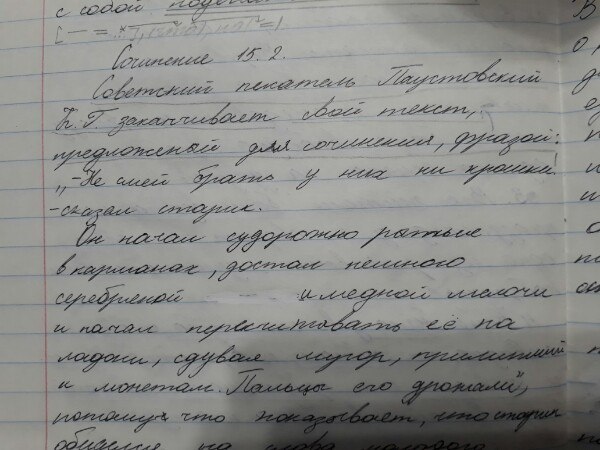 с собой
Сочинение 15.2.
Советский писатель Паустовский
К. Г. заканчивает свой текст,
предложеный для сочинения, фразой:
„-Не смей брать у них ни крошки
-сказал старик.
Он начал судорожно рытые
в карманах, достал немного
серебреной и медной мелочи
и начал пересчитовать её на
ладони, сдувая мусор, прилипший
к монетам. Пальцы его дрожали",
потому что показывает, что старик
обиделся на слова молодого